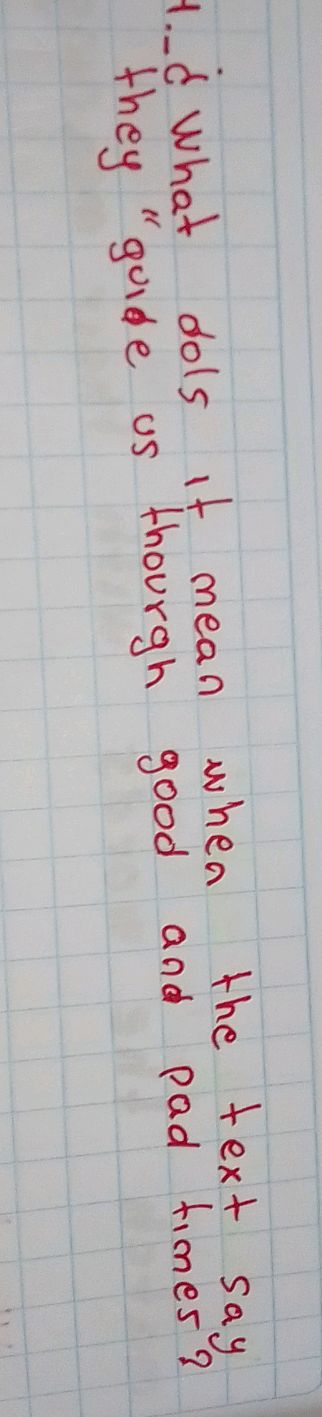 4.-¿What dols it mean when the text say
they "guide us thourgh good and pad times?